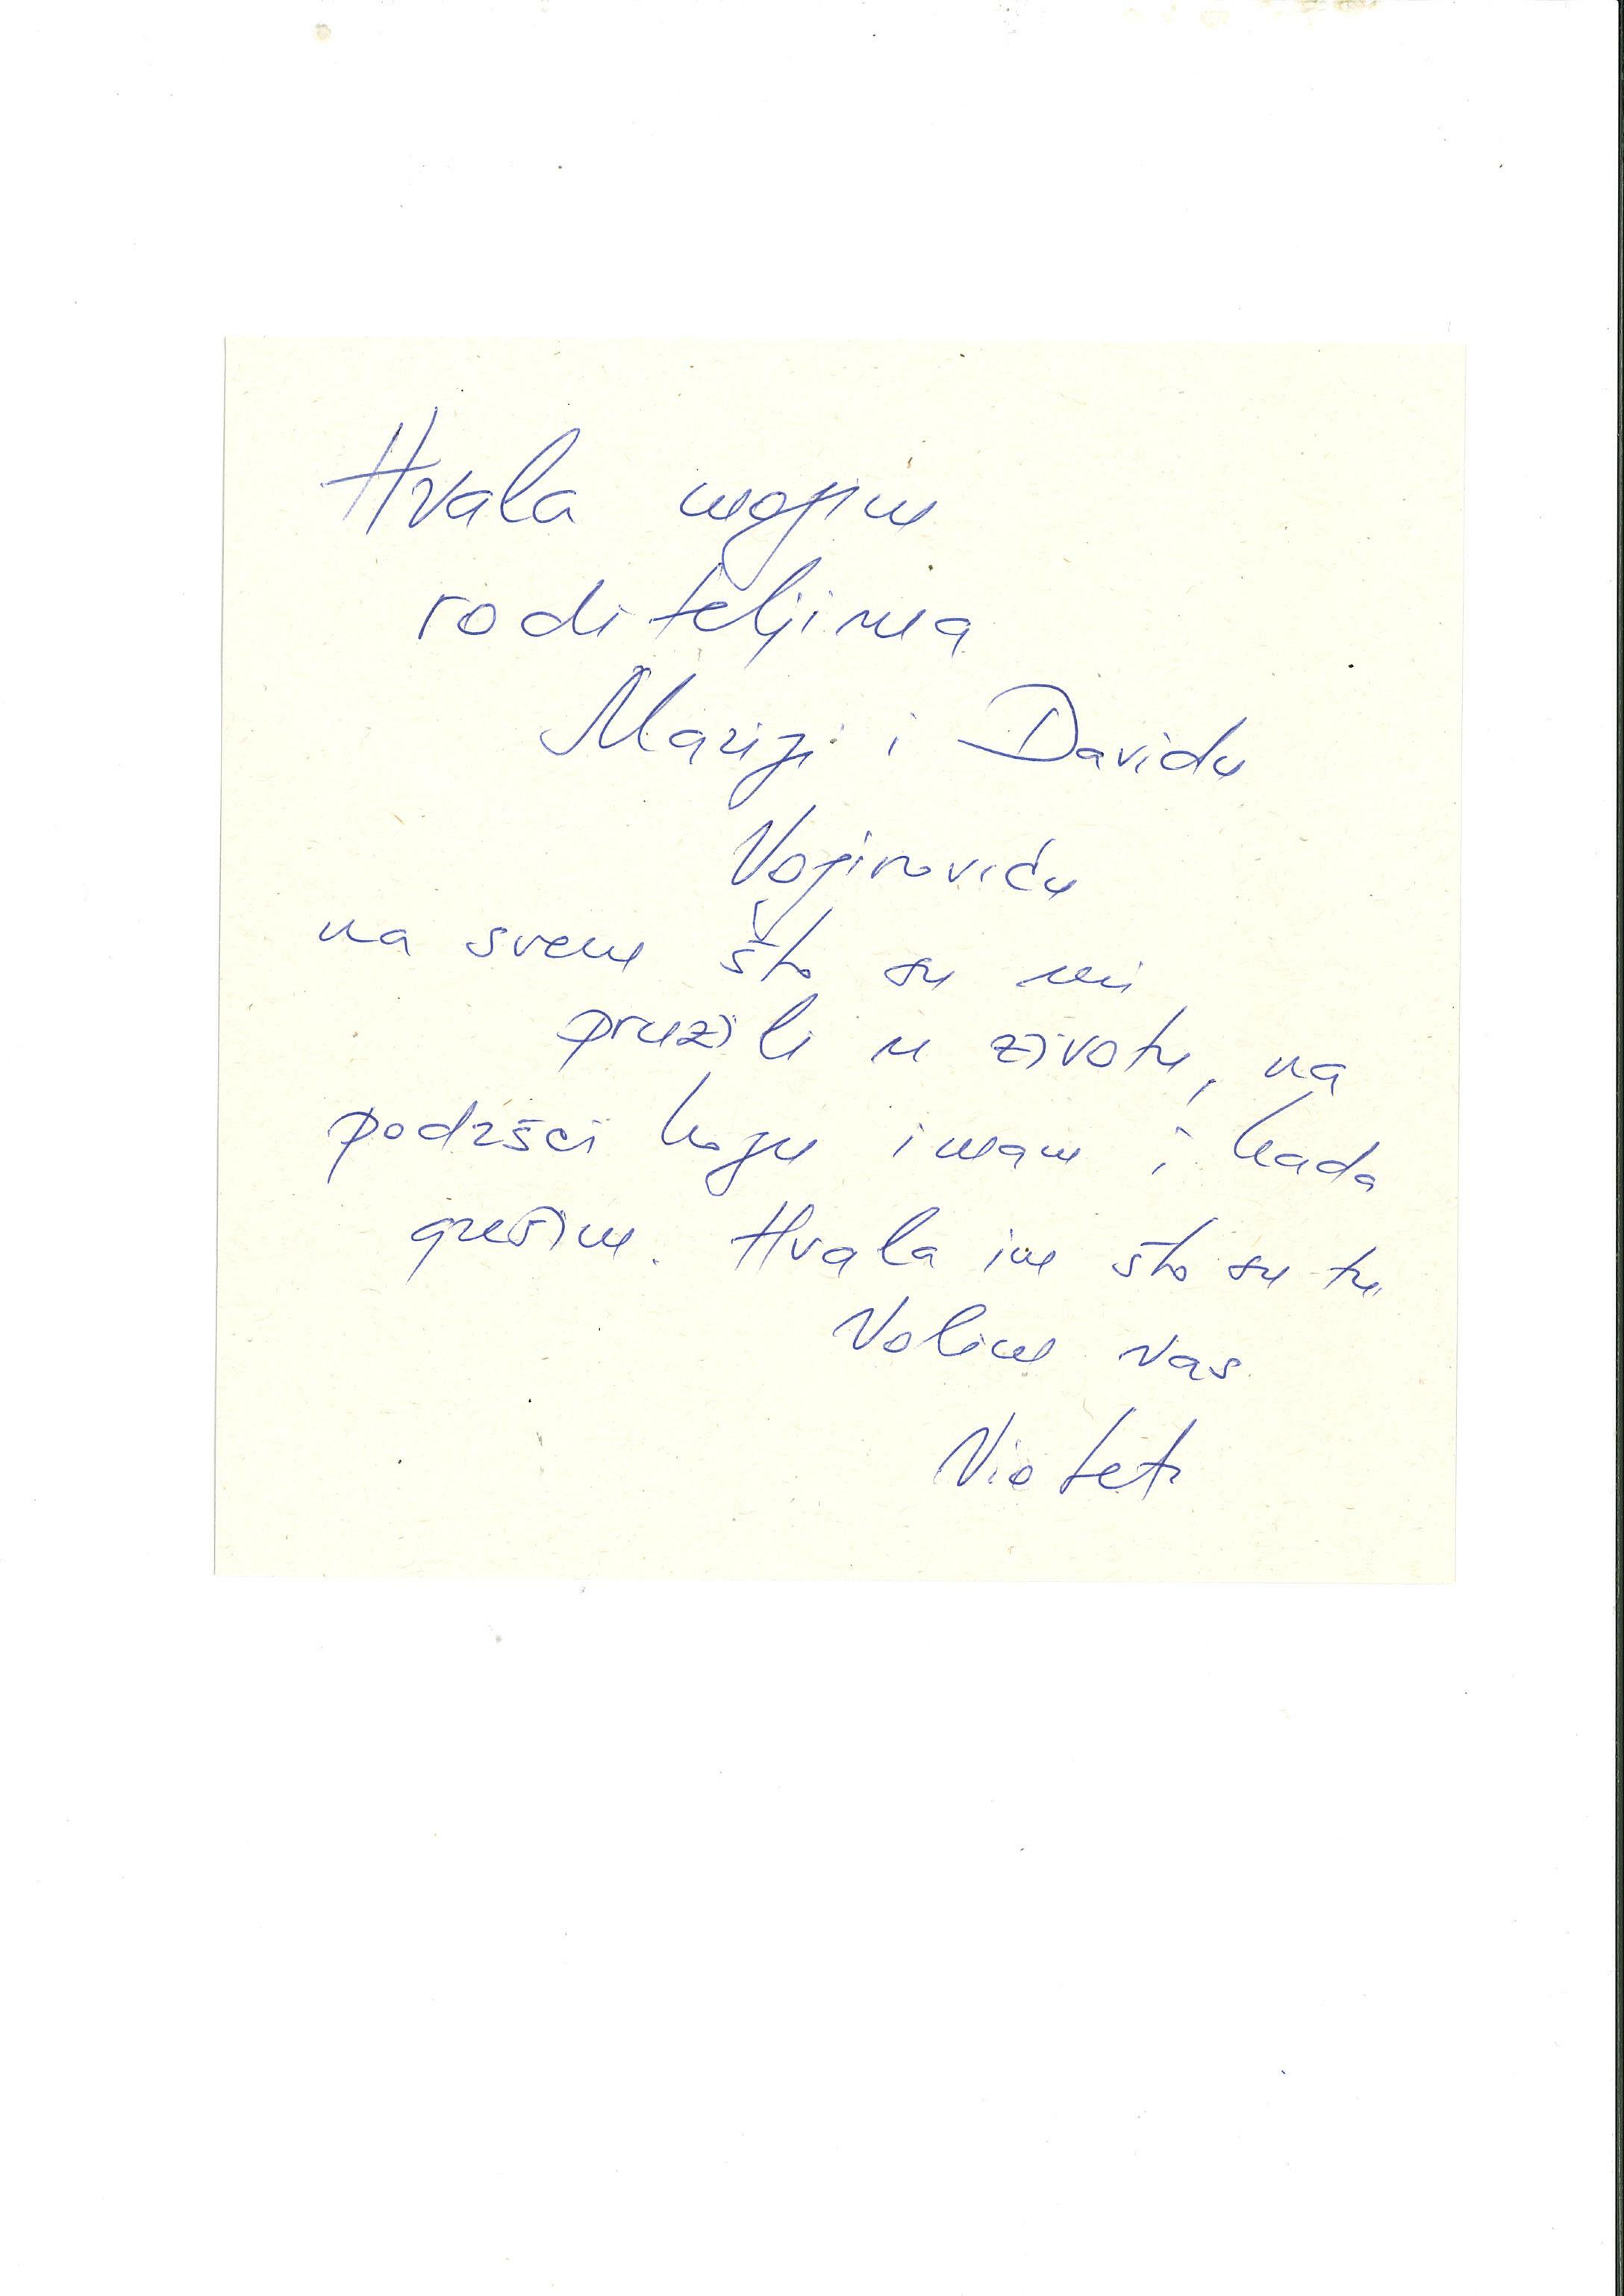 Hvala mojim
roditeljima
Mariji i Davidu
Vojinoviću
na svemu što su mi
pruzili u zivotu, na
podršci koju imam i kada
grešim. Hvala im što su tu
Volim vas